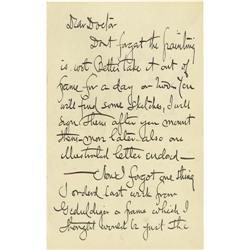 Dear Doctor
Don't forget the painting
is wet Better take it out of
frame for a day or two - You
will find some sketches, I will
sign them after you mount
them - more later. also one
Illustrated letter enclosed -
Now I forgot one thing
I ordered last week from
a frame which I
thought would be just the